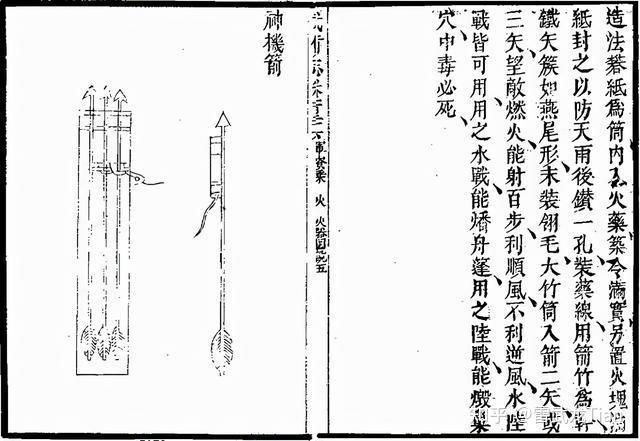 造法礬紙爲筒内入火藥築令滿實另置火塊
紙封之以防天雨後鑚一孔裝藥線用箭竹爲幹
鐵矢簇如燕尾形末裝翎毛大竹筒入箭二矢或
三矢望敵燃火能射百步利順風不利逆風水陸
戰皆可用用之水戰能燔舟篷用之陸戰能燬巢
穴中毒必死
火
神機箭
知乎